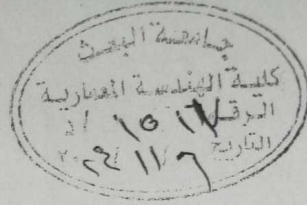 جامعة البعث
كلية الهندسة المعمارية
الرقم / د
التاريخ ٦ / ١١ / ٢٠٢٤